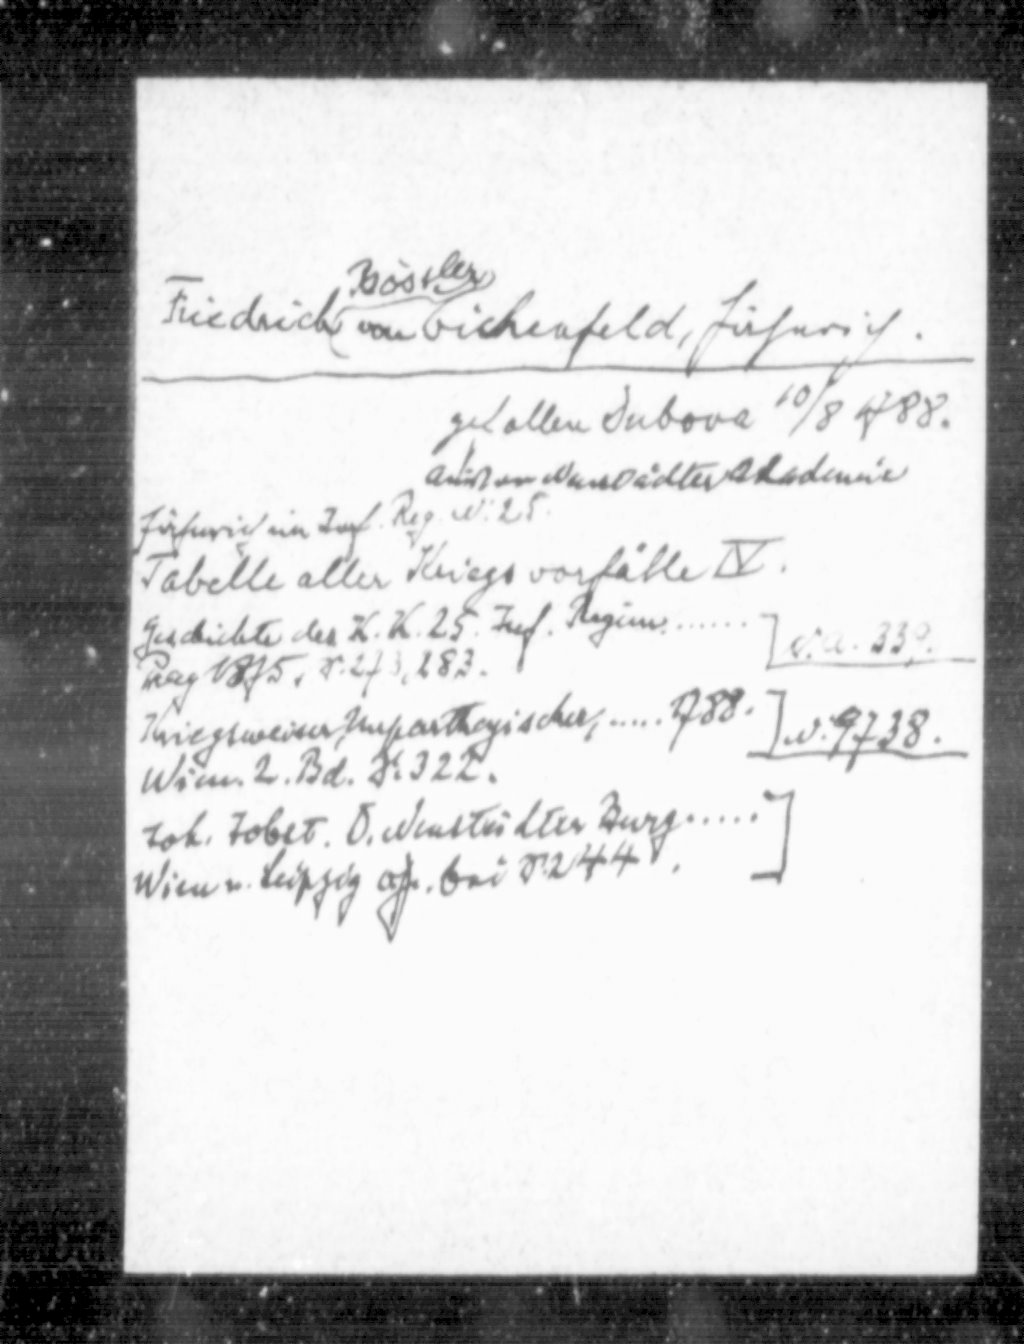 Rössler
Friedrich von Eichenfeld, Fähnrich.
gefallen Dubova 10/8 788.
aus der Neustädter Akademie
Fähnrich im Inf. Reg. N: 25.
Tabelle aller Kriegsvorfälle IV.
Geschichte des K. K. 25. Inf. Regim.......
Prag 1875, S. 273, 283.
Kriegsweiser, Unpartheyischer, ..... 788.
N: 9738.
Wien. 2. Bd. S. 322.
Joh. Jobst. D. Neustädter Burg.....
Wien u. Leipzig bei S. 244.